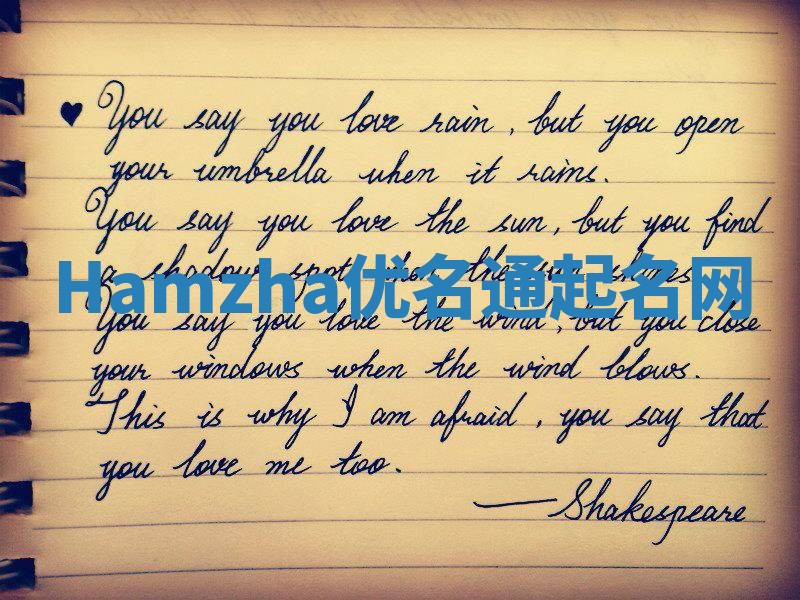 ♥ You say you love rain, but you open
your umbrella when it rains.
You say you love the sun, but you find
a shadow spot when the sun shines.
Hamzha优名通起名网
You say you love the wind, but you close
your windows when the wind blows.
This is why I am afraid, you say that
you love me too.
— Shakespeare